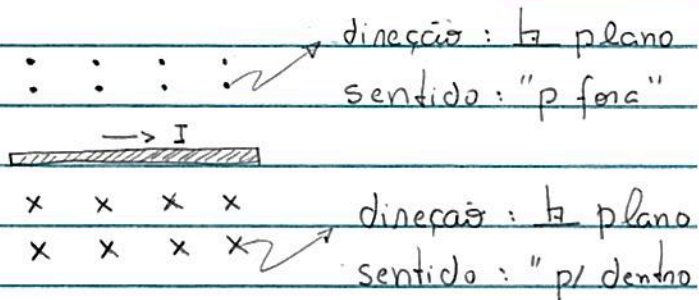 direção : ⊥ plano
sentido : "p fora"
→ I
x x x x
direção : ⊥ plano
x x x x
sentido : " p/ dentro